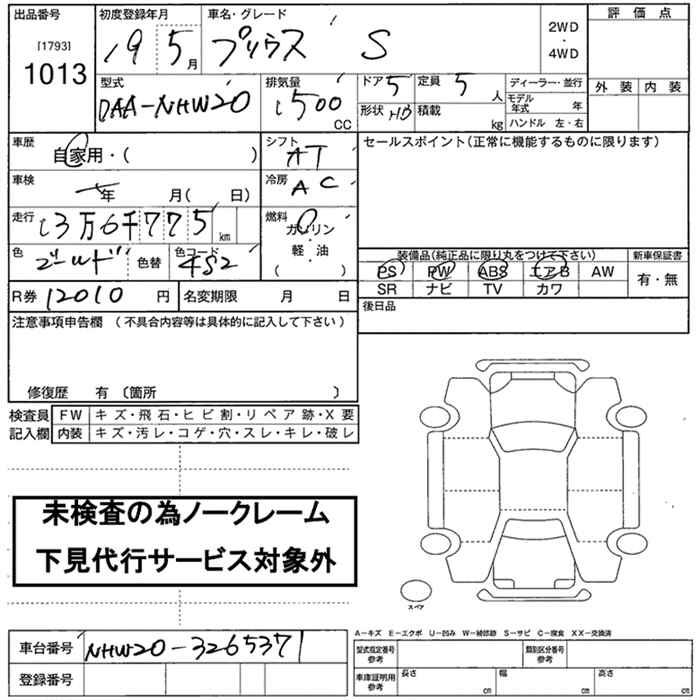 出品番号 初度登録年月 車名・グレード 評価点
[1793]
1013
19 5月 プリウス S
2WD
・
4WD
外装 内装
型式 排気量 ドア 5 定員 5 人 ディーラー・並行
DAA-NHW20 1500 CC
形状 HB 積載 kg
モデル年式 年
ハンドル 左・右
車歴 自家用・( ) シフト AT
セールスポイント(正常に機能するものに限ります)
車検 年 月( 日) 冷房 AC
走行 13万6千775km 燃料 ガソリン
軽・油
( )
色 ゴールド 色替 色コード 4S2
装備品(純正品に限り丸をつけて下さい) 新車保証書
PS PW ABS エアB AW 有・無
SR ナビ TV カワ
R券 12010円 名変期限 月 日
後日品
注意事項申告欄 (不具合内容等は具体的に記入して下さい)
修復歴 有 〔箇所 〕
検査員 FW キズ・飛石・ヒビ割・リペア跡・X要
記入欄 内装 キズ・汚レ・コゲ・穴・スレ・キレ・破レ
未検査の為ノークレーム
下見代行サービス対象外
スペア
A−キズ E−エクボ U−凹み W−補修跡 S−サビ C−腐食 XX−交換済
車台番号 NHW20-3265371
型式指定番号
参考
類別区分番号
参考
登録番号
車庫証明用
参考
長さ cm 幅 cm 高さ cm